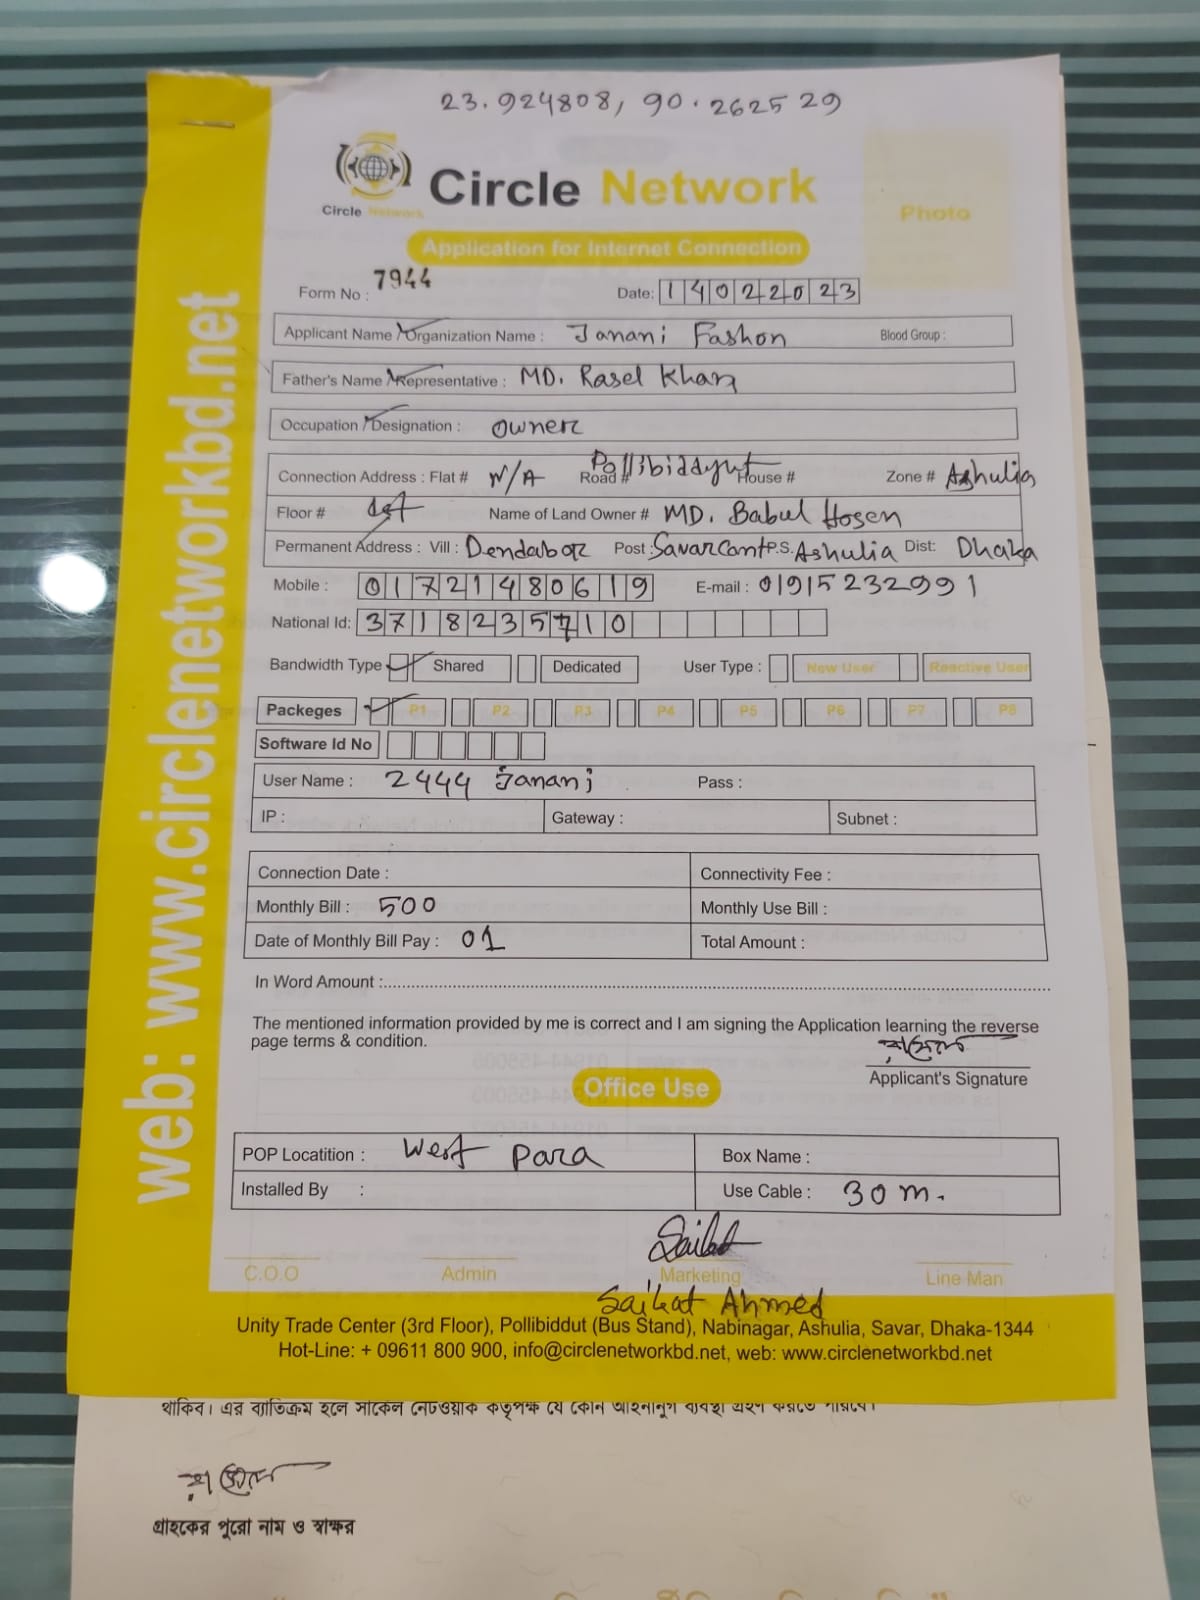 23.924808, 90.262529
Circle Network
Circle Network
Photo
Application for Internet Connection
Form No : 7944
Date: 14022023
Applicant Name / Organization Name : Janani Fashon Blood Group :
Father's Name / Representative : MD. Rasel Khan
Occupation / Designation : Owner
Connection Address : Flat # N/A Road # Pollibiddyut House # Zone # Ashulia
Floor # 1st Name of Land Owner # MD. Babul Hosen
Permanent Address : Vill : Dendabor Post : Savarcant P.S. Ashulia Dist: Dhaka
Mobile : 01721480619 E-mail : 01915232991
National Id: 3718235710
Bandwidth Type Shared Dedicated User Type : New User Reactive User
Packeges P1 P2 P3 P4 P5 P6 P7 P8
Software Id No
User Name : 2444 Janani Pass :
IP : Gateway : Subnet :
Connection Date : Connectivity Fee :
Monthly Bill : 500 Monthly Use Bill :
Date of Monthly Bill Pay : 01 Total Amount :
In Word Amount :
The mentioned information provided by me is correct and I am signing the Application learning the reverse
page terms & condition.
রাসেল
Applicant's Signature
Office Use
POP Locatition : West Para Box Name :
Installed By : Use Cable : 30 m.
Saikat
C.O.O Admin Marketing Line Man
Saikat Ahmed
Unity Trade Center (3rd Floor), Pollibiddut (Bus Stand), Nabinagar, Ashulia, Savar, Dhaka-1344
Hot-Line: + 09611 800 900, info@circlenetworkbd.net, web: www.circlenetworkbd.net
web: www.circlenetworkbd.net
থাকিব। এর ব্যতিক্রম হলে সার্কেল নেটওয়ার্ক কতৃপক্ষ যে কোন আইনানুগ ব্যবস্থা গ্রহণ করতে পারবে।
রাসেল
গ্রাহকের পুরো নাম ও স্বাক্ষর